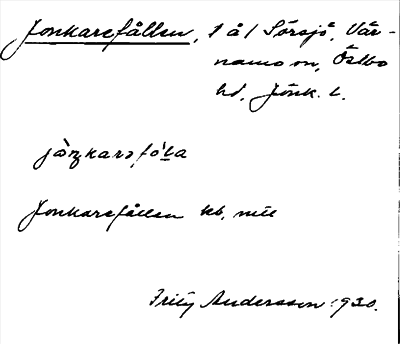 Jonkarefållen, 1 å 1 Sörsjö, Vär-
namo sn, Östbo
hd, Jönk. l.
Jonkarefållen kb, mtl
Fritz Andersson 1930.